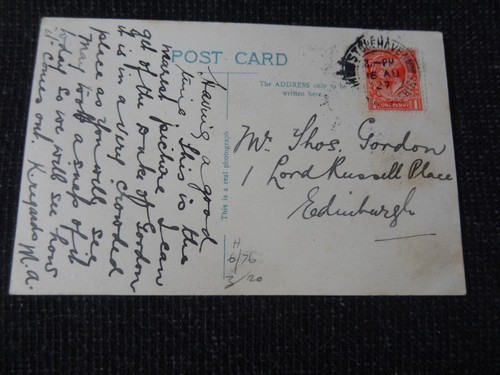 POST CARD
The ADDRESS only to be
written here.
This is a real photograph
STONEHAVEN
3-PM
16 AU
27
ONE PENNY
Having a good
time This is the
nearest picture I can
get of the Duke of Gordon
it is in a very crowded
place as you will see
May took a snap of it
today so we will see how
it comes out. K. regards M.A.
Mr. Thos. Gordon
1 Lord Russell Place
Edinburgh
H
6/76
2/20